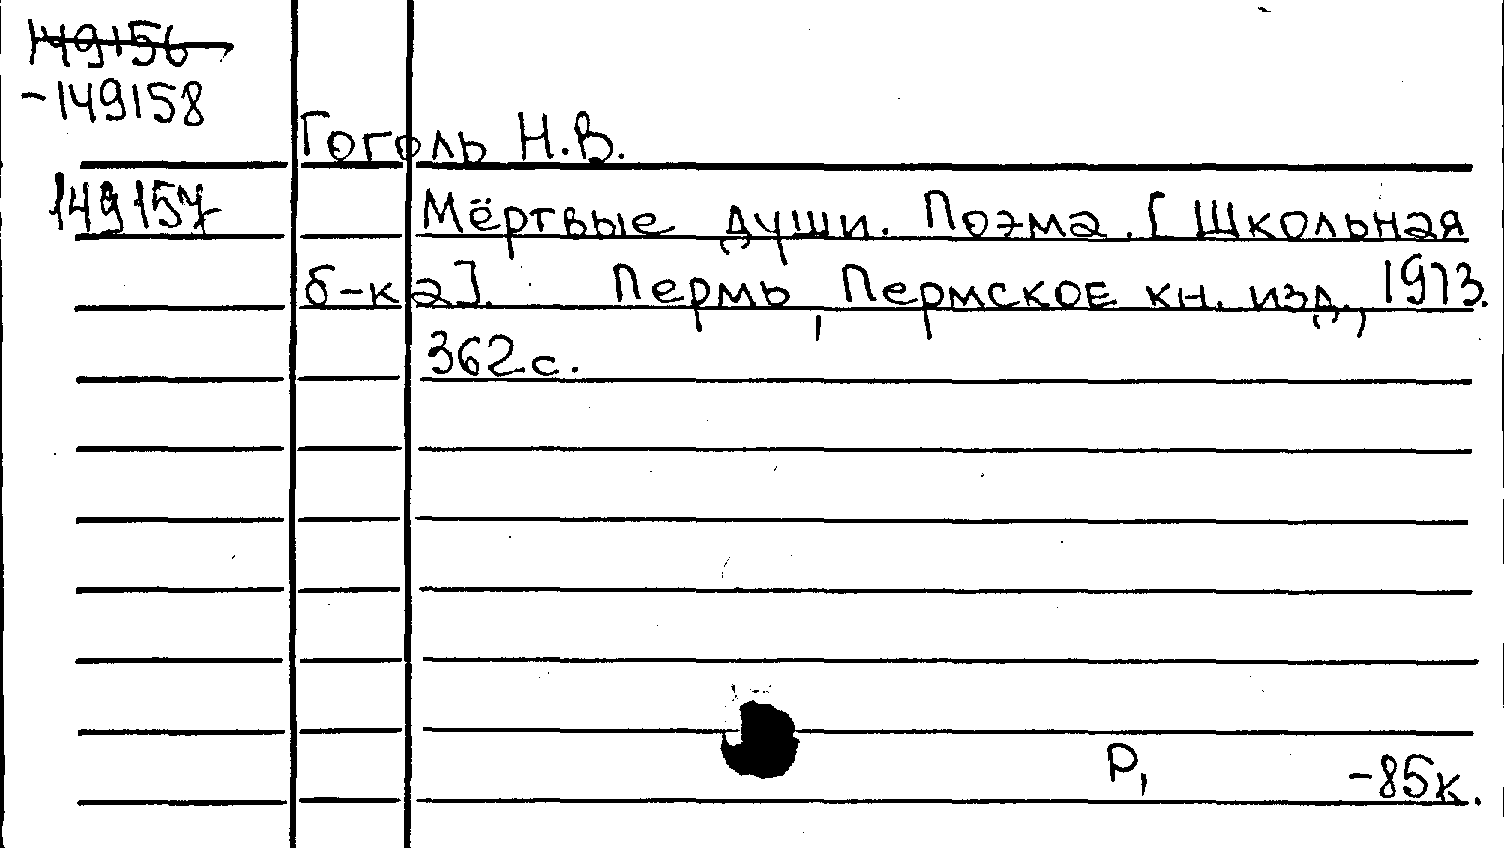 149156
-149158
Гоголь Н.В.
149157 Мёртвые души. Поэма. [Школьная
б-ка]. Пермь, Пермское кн. изд., 1973.
362с.
Р, -85к.